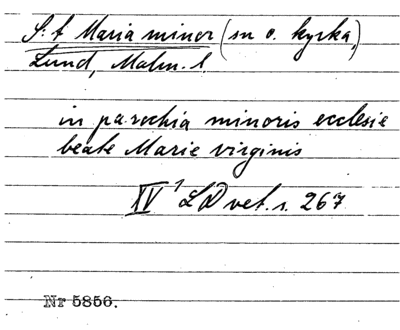 S:t Maria minor (sn o. kyrka,)
Lund, Malm. l.
in parochia minoris ecclesie
beate Marie virginis
XV¹ LD vet. s. 267
Nr 5856.